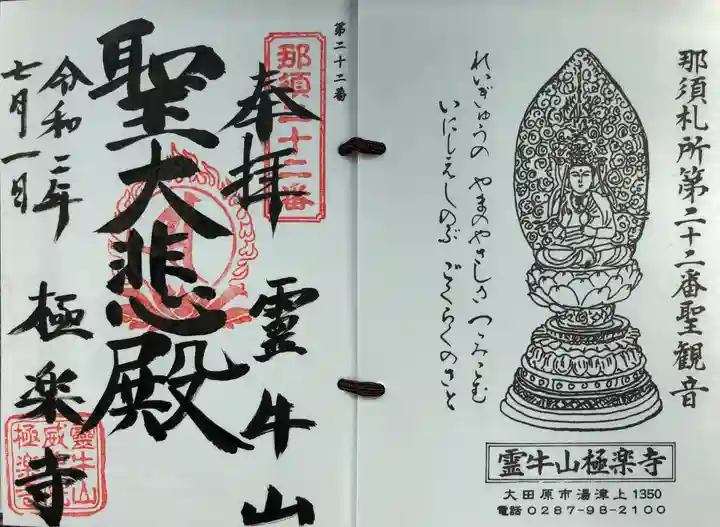 那須札所第二十二番聖観音
れいぎゅうの やまのやさしさ つゝみこむ
いにしえしのぶ ごくらくのさと
霊牛山極楽寺
大田原市湯津上1350
電話0287-98-2100
第二十二番
那須二十二番
奉拝
霊牛山
聖大悲殿
令和二年
七月一日
極楽寺